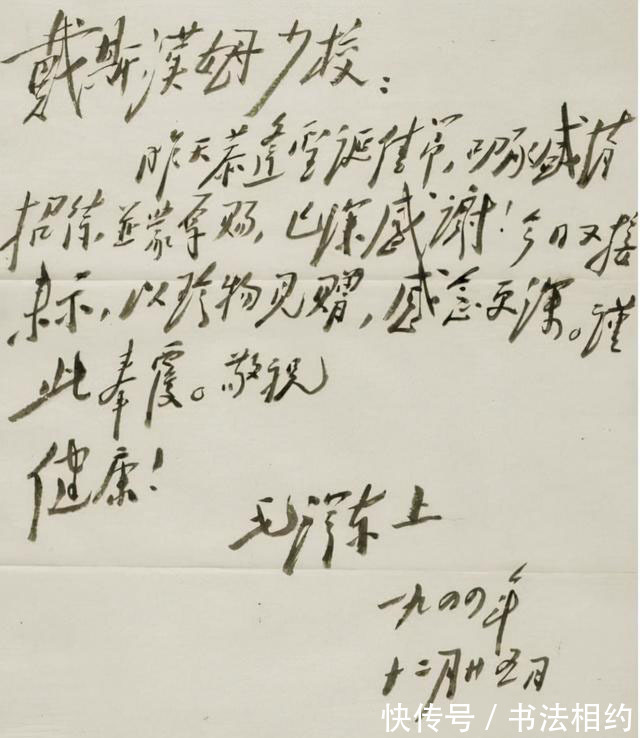 戴斯漢姆少校：
昨天恭逢聖诞佳节，叨承盛情
招待，並蒙厚赐，已深感谢！今日又接
来示，以珍物见赠，感念更深。谨
此奉覆。敬祝
健康！
毛泽东上
一九四四年
十二月廿五日
快传号 / 书法相约